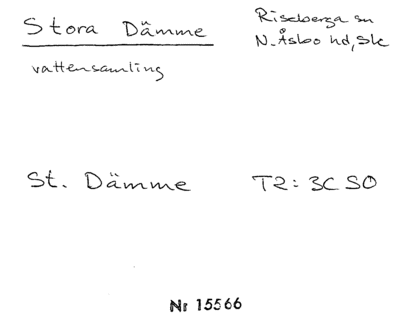 Stora Dämme
Riseberga sn
N. Åsbo hd, Sk
vattensamling
St. Dämme
T2: 3C SO
Nr 15566